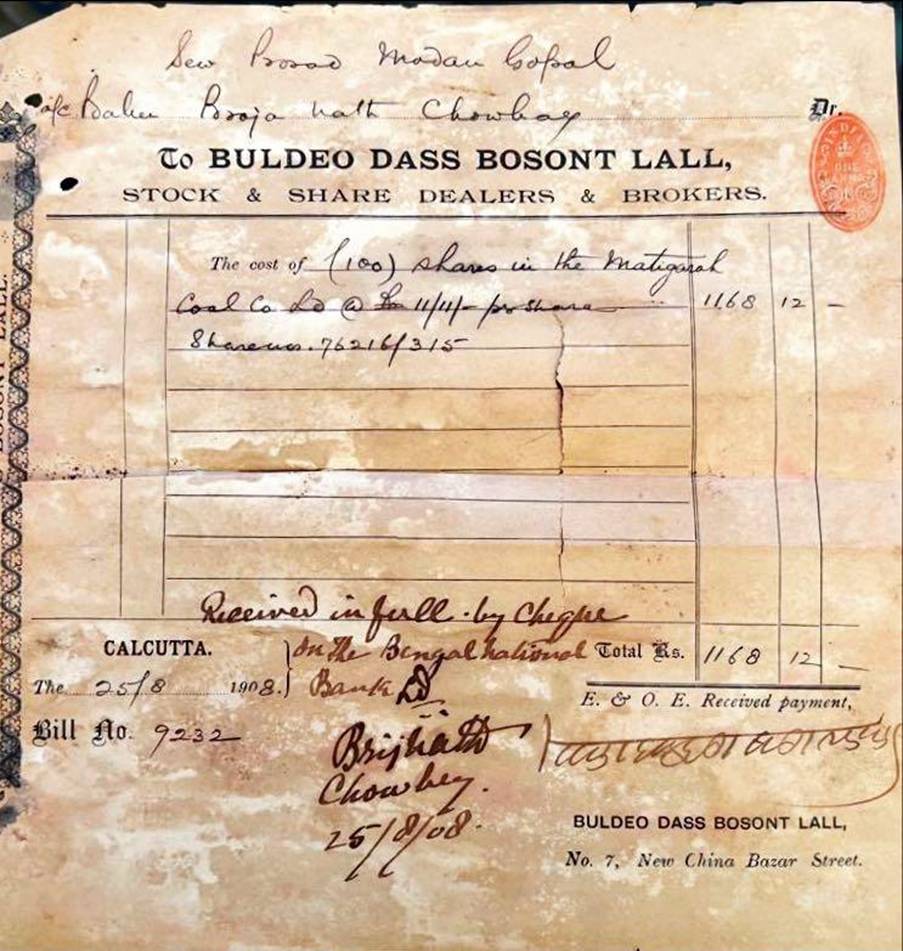 Sew Prosad Modan Gopal
a/c Babu Broja nath Chowbay Dr.
To BULDEO DASS BOSONT LALL,
STOCK & SHARE DEALERS & BROKERS.
INDIA
ONE
The cost of (100) shares in the Matigarah
Coal Co Ld @ Rs 11/11/- per share 1168 12 –
Share nos. 76216/315
Received in full by Cheque
CALCUTTA. on the Bengal national Total Rs. 1168 12 –
The 25/8 1908. Bank Ld
E. & O. E. Received payment,
Bill No. 9232
Brijnath
Chowbey.
25/8/08.
BULDEO DASS BOSONT LALL,
No. 7, New China Bazar Street.
BOSONT LALL.